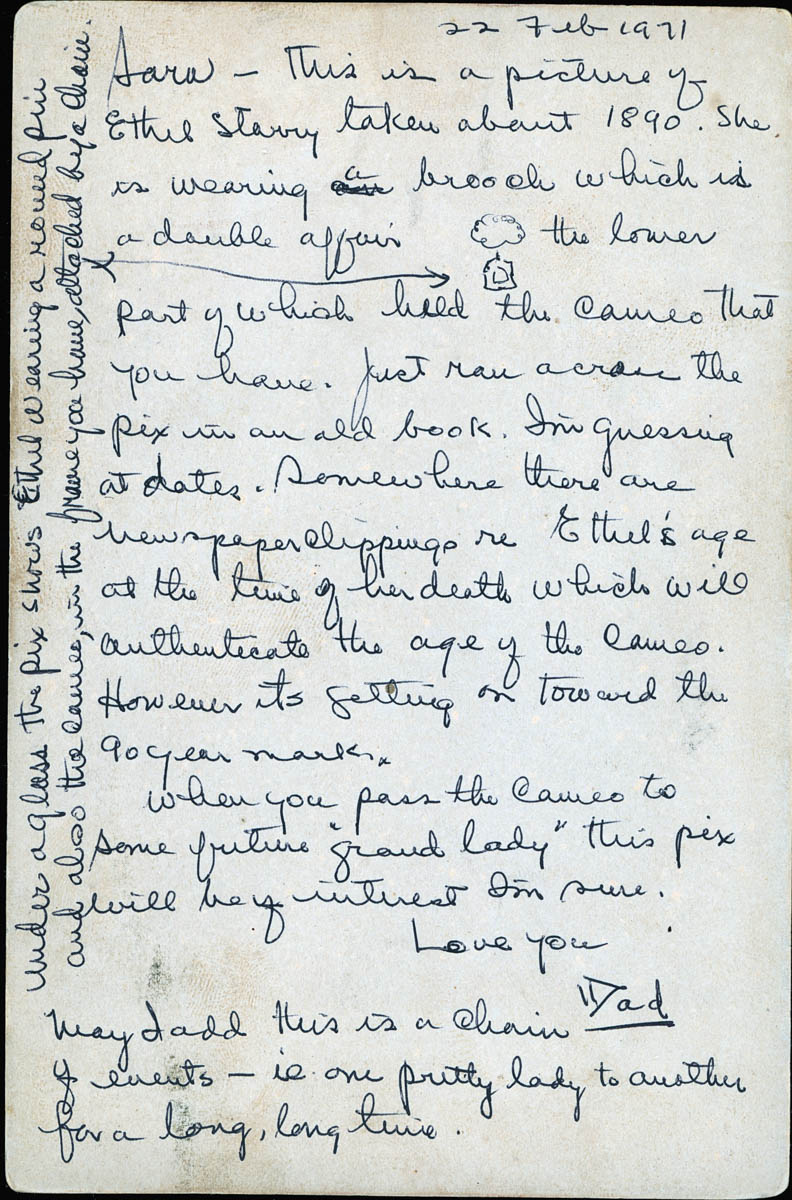 22 Feb 1971
Sara – This is a picture of
Ethel Starry taken about 1890. She
is wearing a brooch which is
a double affair the lower
part of which held the cameo that
you have. Just ran across the
pix in an old book. I'm guessing
at dates. Somewhere there are
newspaper clippings re Ethel's age
at the time of her death which will
authenticate the age of the cameo.
However its getting on toward the
90 year mark.
When you pass the cameo to
some future "grand lady" this pix
will be of interest I'm sure.
Love you
Dad
May I add this is a chain
of events – ie one pretty lady to another
for a long, long time.
Under a glass the pix shows Ethel wearing a round pin
and also the cameo, in the frame you have, attached by a chain.